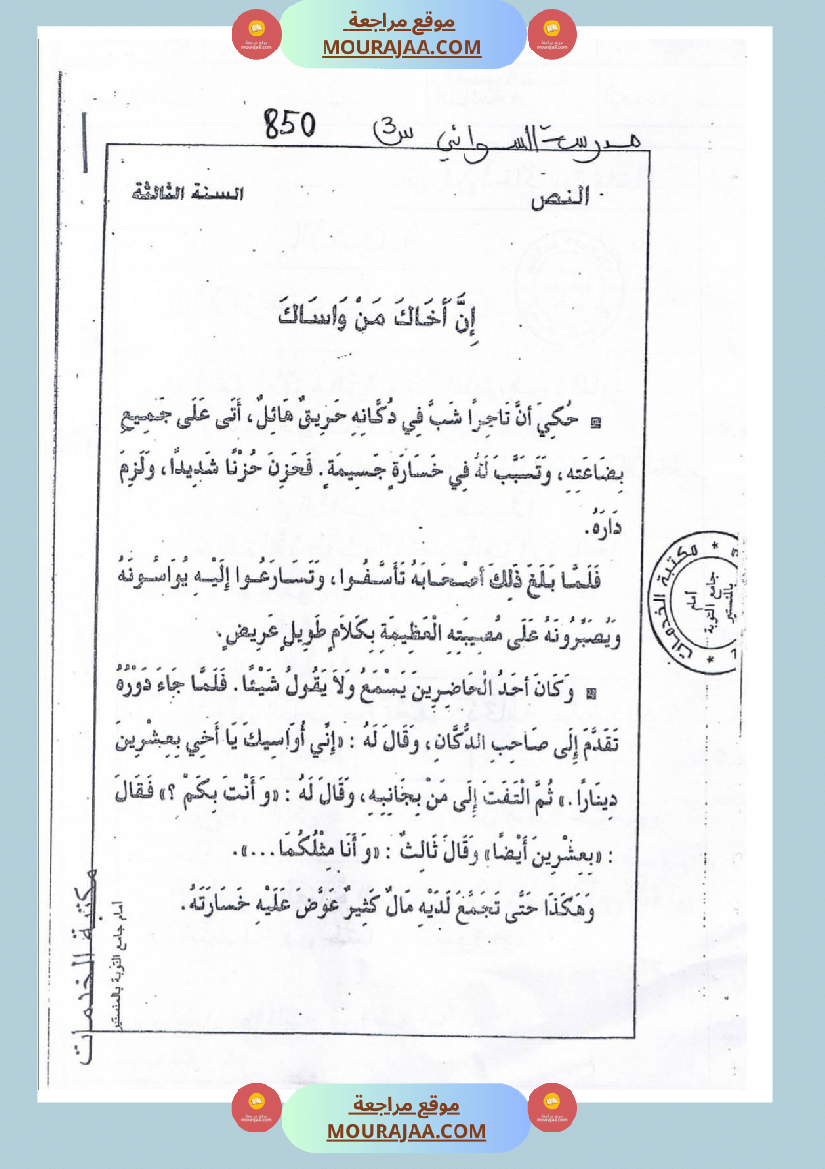 موقع مراجعة
MOURAJAA.COM
مدرسة السواني س3 850
النص
السنة الثالثة
إِنَّ أَخَاكَ مَنْ وَاسَاكَ
حُكِيَ أنَّ تَاجِرًا شَبَّ فِي دُكَّانِهِ حَرِيقٌ هَائِلٌ، أَتَى عَلَى جَمِيعِ
بِضَاعَتِهِ، وَتَسَبَّبَ لَهُ فِي خَسَارَةٍ جَسِيمَةٍ. فَحَزِنَ حُزْنًا شَدِيدًا، وَلَزِمَ
دَارَهُ.
فَلَمَّا بَلَغَ ذَلِكَ أصْحَابَهُ تَأَسَّفُوا، وَتَسَارَعُوا إلَيْهِ يُوَاسُونَهُ
وَيُصَبِّرُونَهُ عَلَى مُصِيبَتِهِ الْعَظِيمَةِ بِكَلاَمٍ طَوِيلٍ عَرِيضٍ.
وَكَانَ أحَدُ الْحَاضِرِينَ يَسْمَعُ وَلاَ يَقُولُ شَيْئًا. فَلَمَّا جَاءَ دَوْرُهُ
تَقَدَّمَ إلَى صَاحِبِ الدُّكَّانِ، وَقَالَ لَهُ : «إنِّي أُوَاسِيكَ يَا أَخِي بِعِشْرِينَ
دِينَارًا.» ثُمَّ الْتَفَتَ إلَى مَنْ بِجَانِبِهِ، وَقَالَ لَهُ : «وَ أَنْتَ بِكَمْ ؟» فَقَالَ
: «بِعِشْرِينَ أَيْضًا» وَقَالَ ثَالِثٌ : «وَ أَنَا مِثْلُكُمَا...».
وَهَكَذَا حَتَّى تَجَمَّعَ لَدَيْهِ مَالٌ كَثِيرٌ عَوَّضَ عَلَيْهِ خَسَارَتَهُ.
مكتبة الخدمات
أمام جامع التوبة بالمنستير
مكتبة الخدمات
أمام
جامع التوبة
بالمنستير
موقع مراجعة
MOURAJAA.COM